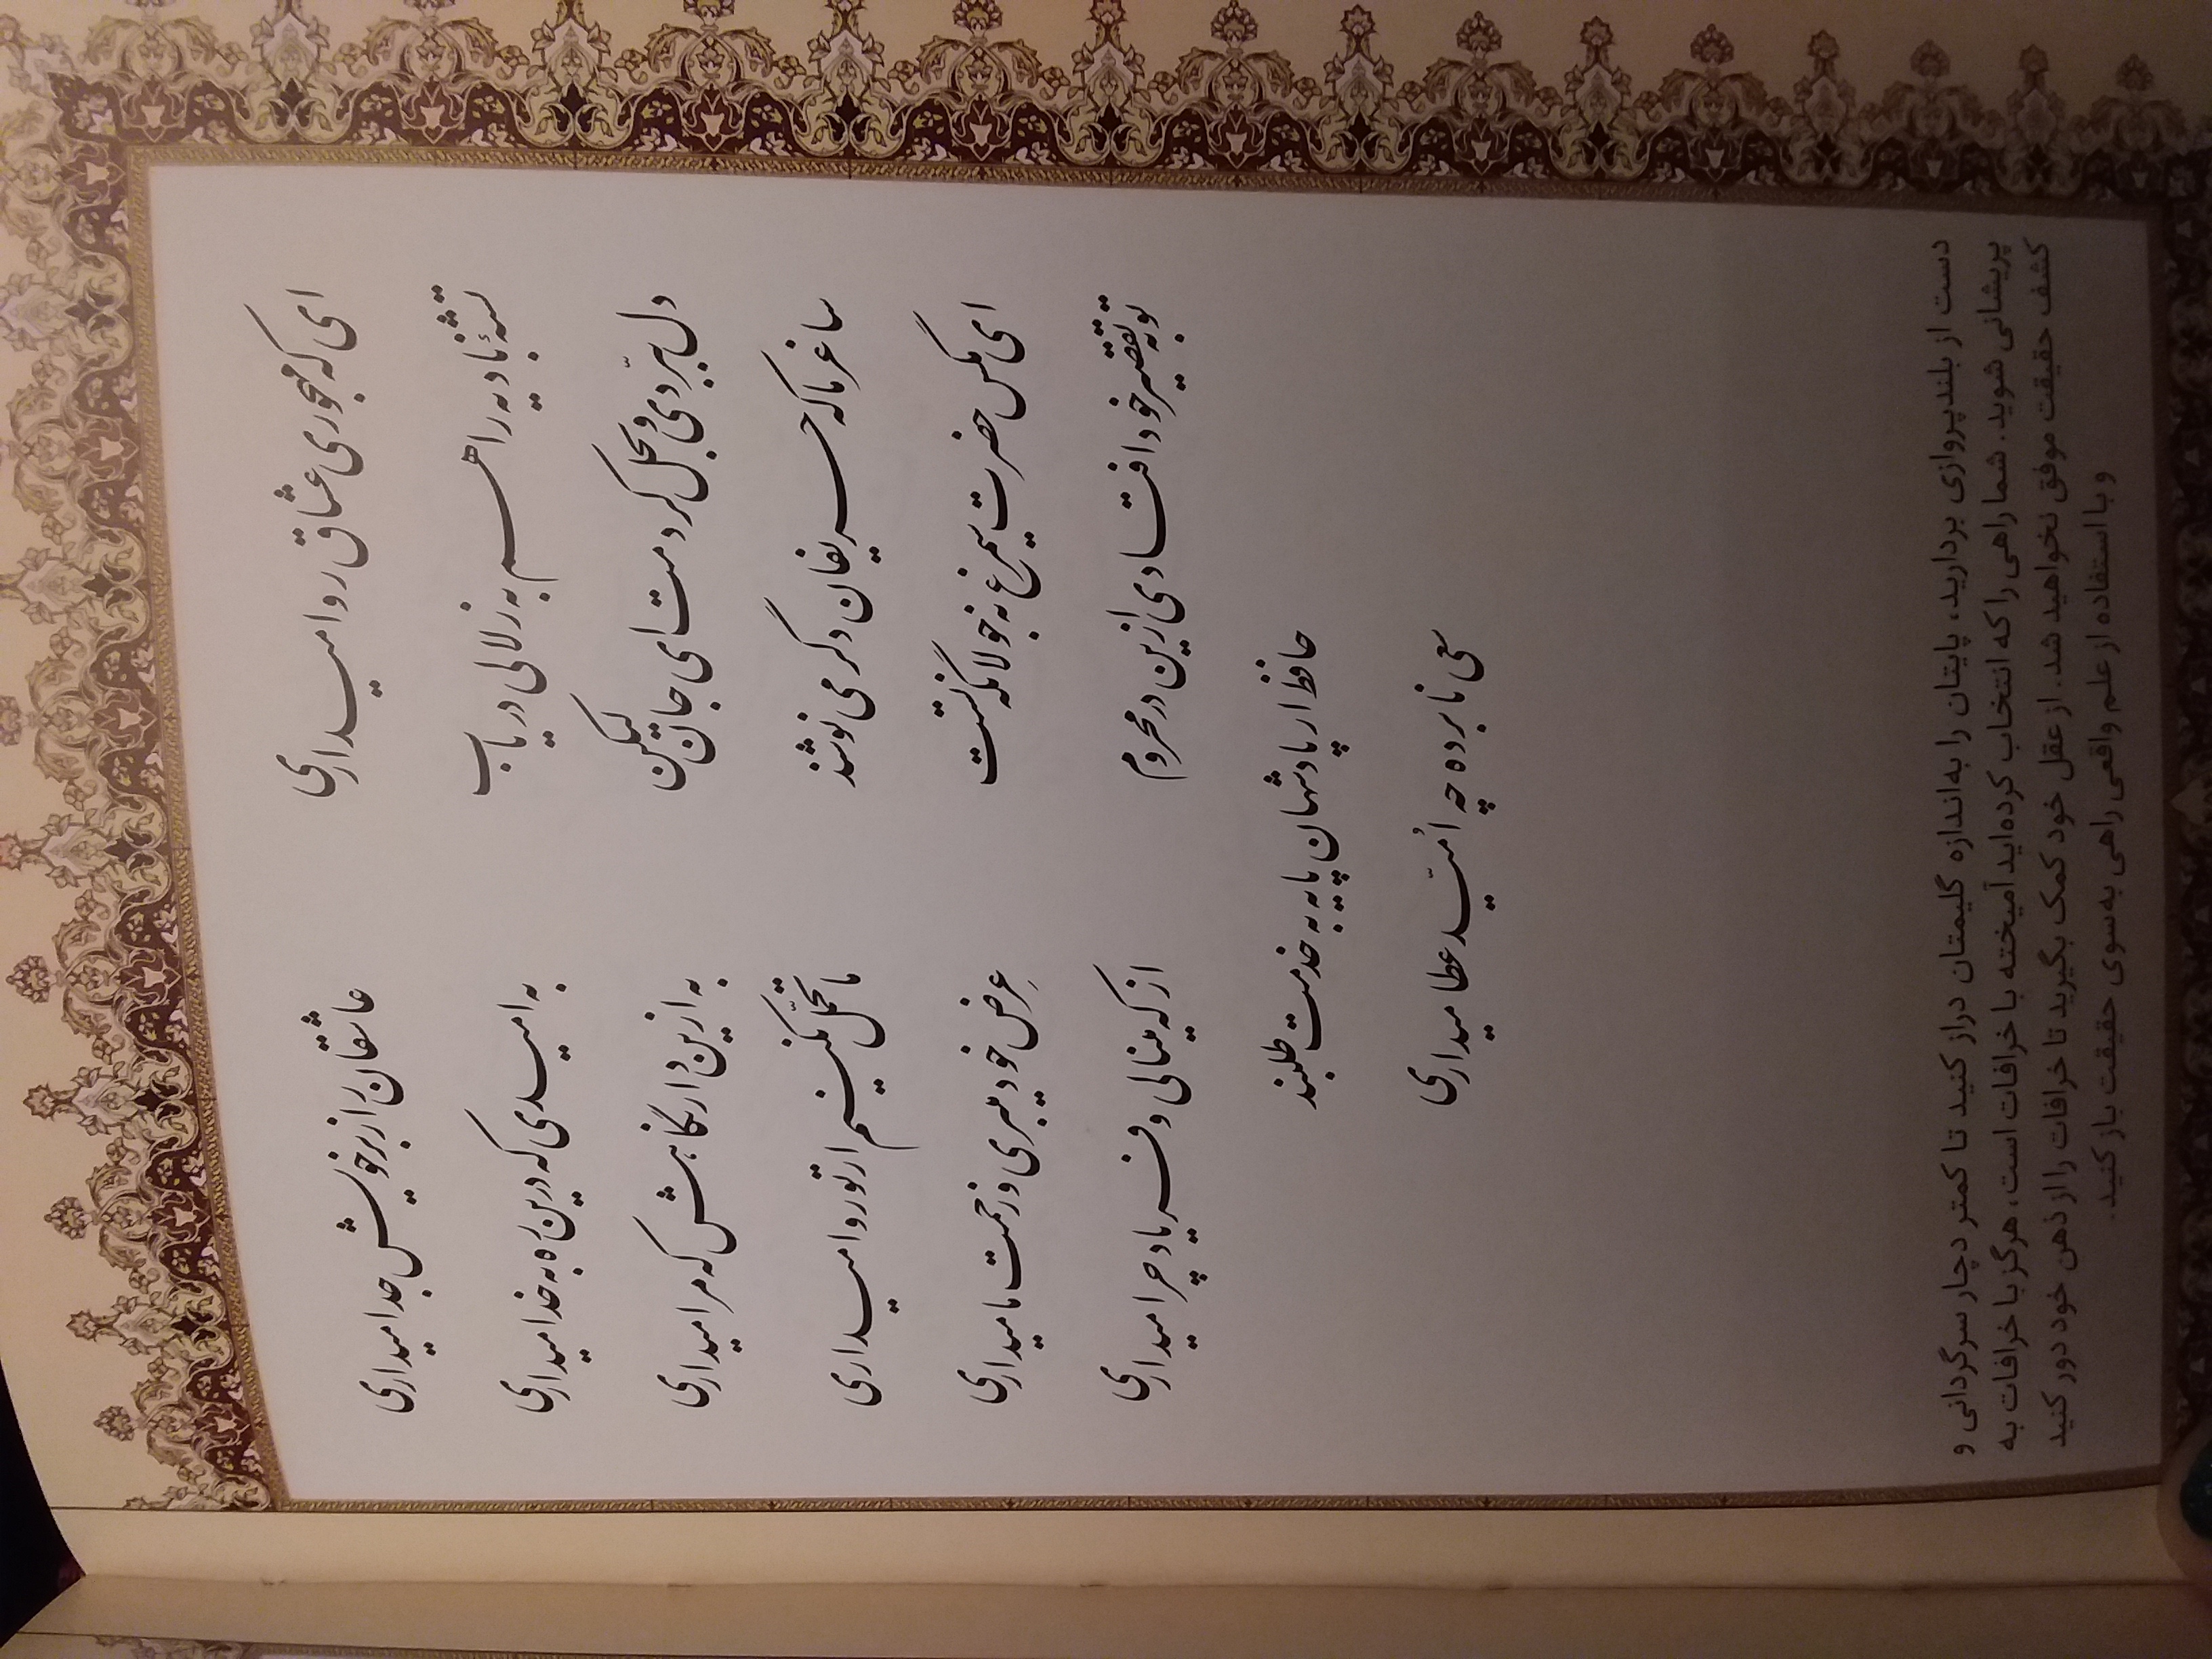 ای که مهجوری عشاق روا میداری
عاشقان را ز بر خویش جدا میداری
تشنهٔ بادیه را هم به زلالی دریاب
به امیدی که درین ره به خدا میداری
دل ببردی و بحل کردمت ای جان لیکن
به ازین دار نگاهش که مرا میداری
ساغر ما که حریفان دگر می نوشند
ما تحمّل نکنیم ار تو روا میداری
ای مگس حضرت سیمرغ نه جولانگه تست
عِرض خود میبری و زحمت ما میداری
تو به تقصیر خود افتادی ازین در محروم
از که مینالی و فریاد چرا میداری
حافظ از پادشهان پایه به خدمت طلبند
سعی نابرده چه اُمیّد عطا میداری
دست از بلندپروازی بردارید، پایتان را به اندازه گلیمتان دراز کنید تا کمتر دچار سرگردانی و
پریشانی شوید. شما راهی را که انتخاب کرده‌اید آمیخته با خرافات است، هرگز با خرافات به
کشف حقیقت موفق نخواهید شد. از عقل خود کمک بگیرید تا خرافات را از ذهن خود دور کنید
و با استفاده از علم واقعی راهی به سوی حقیقت باز کنید.